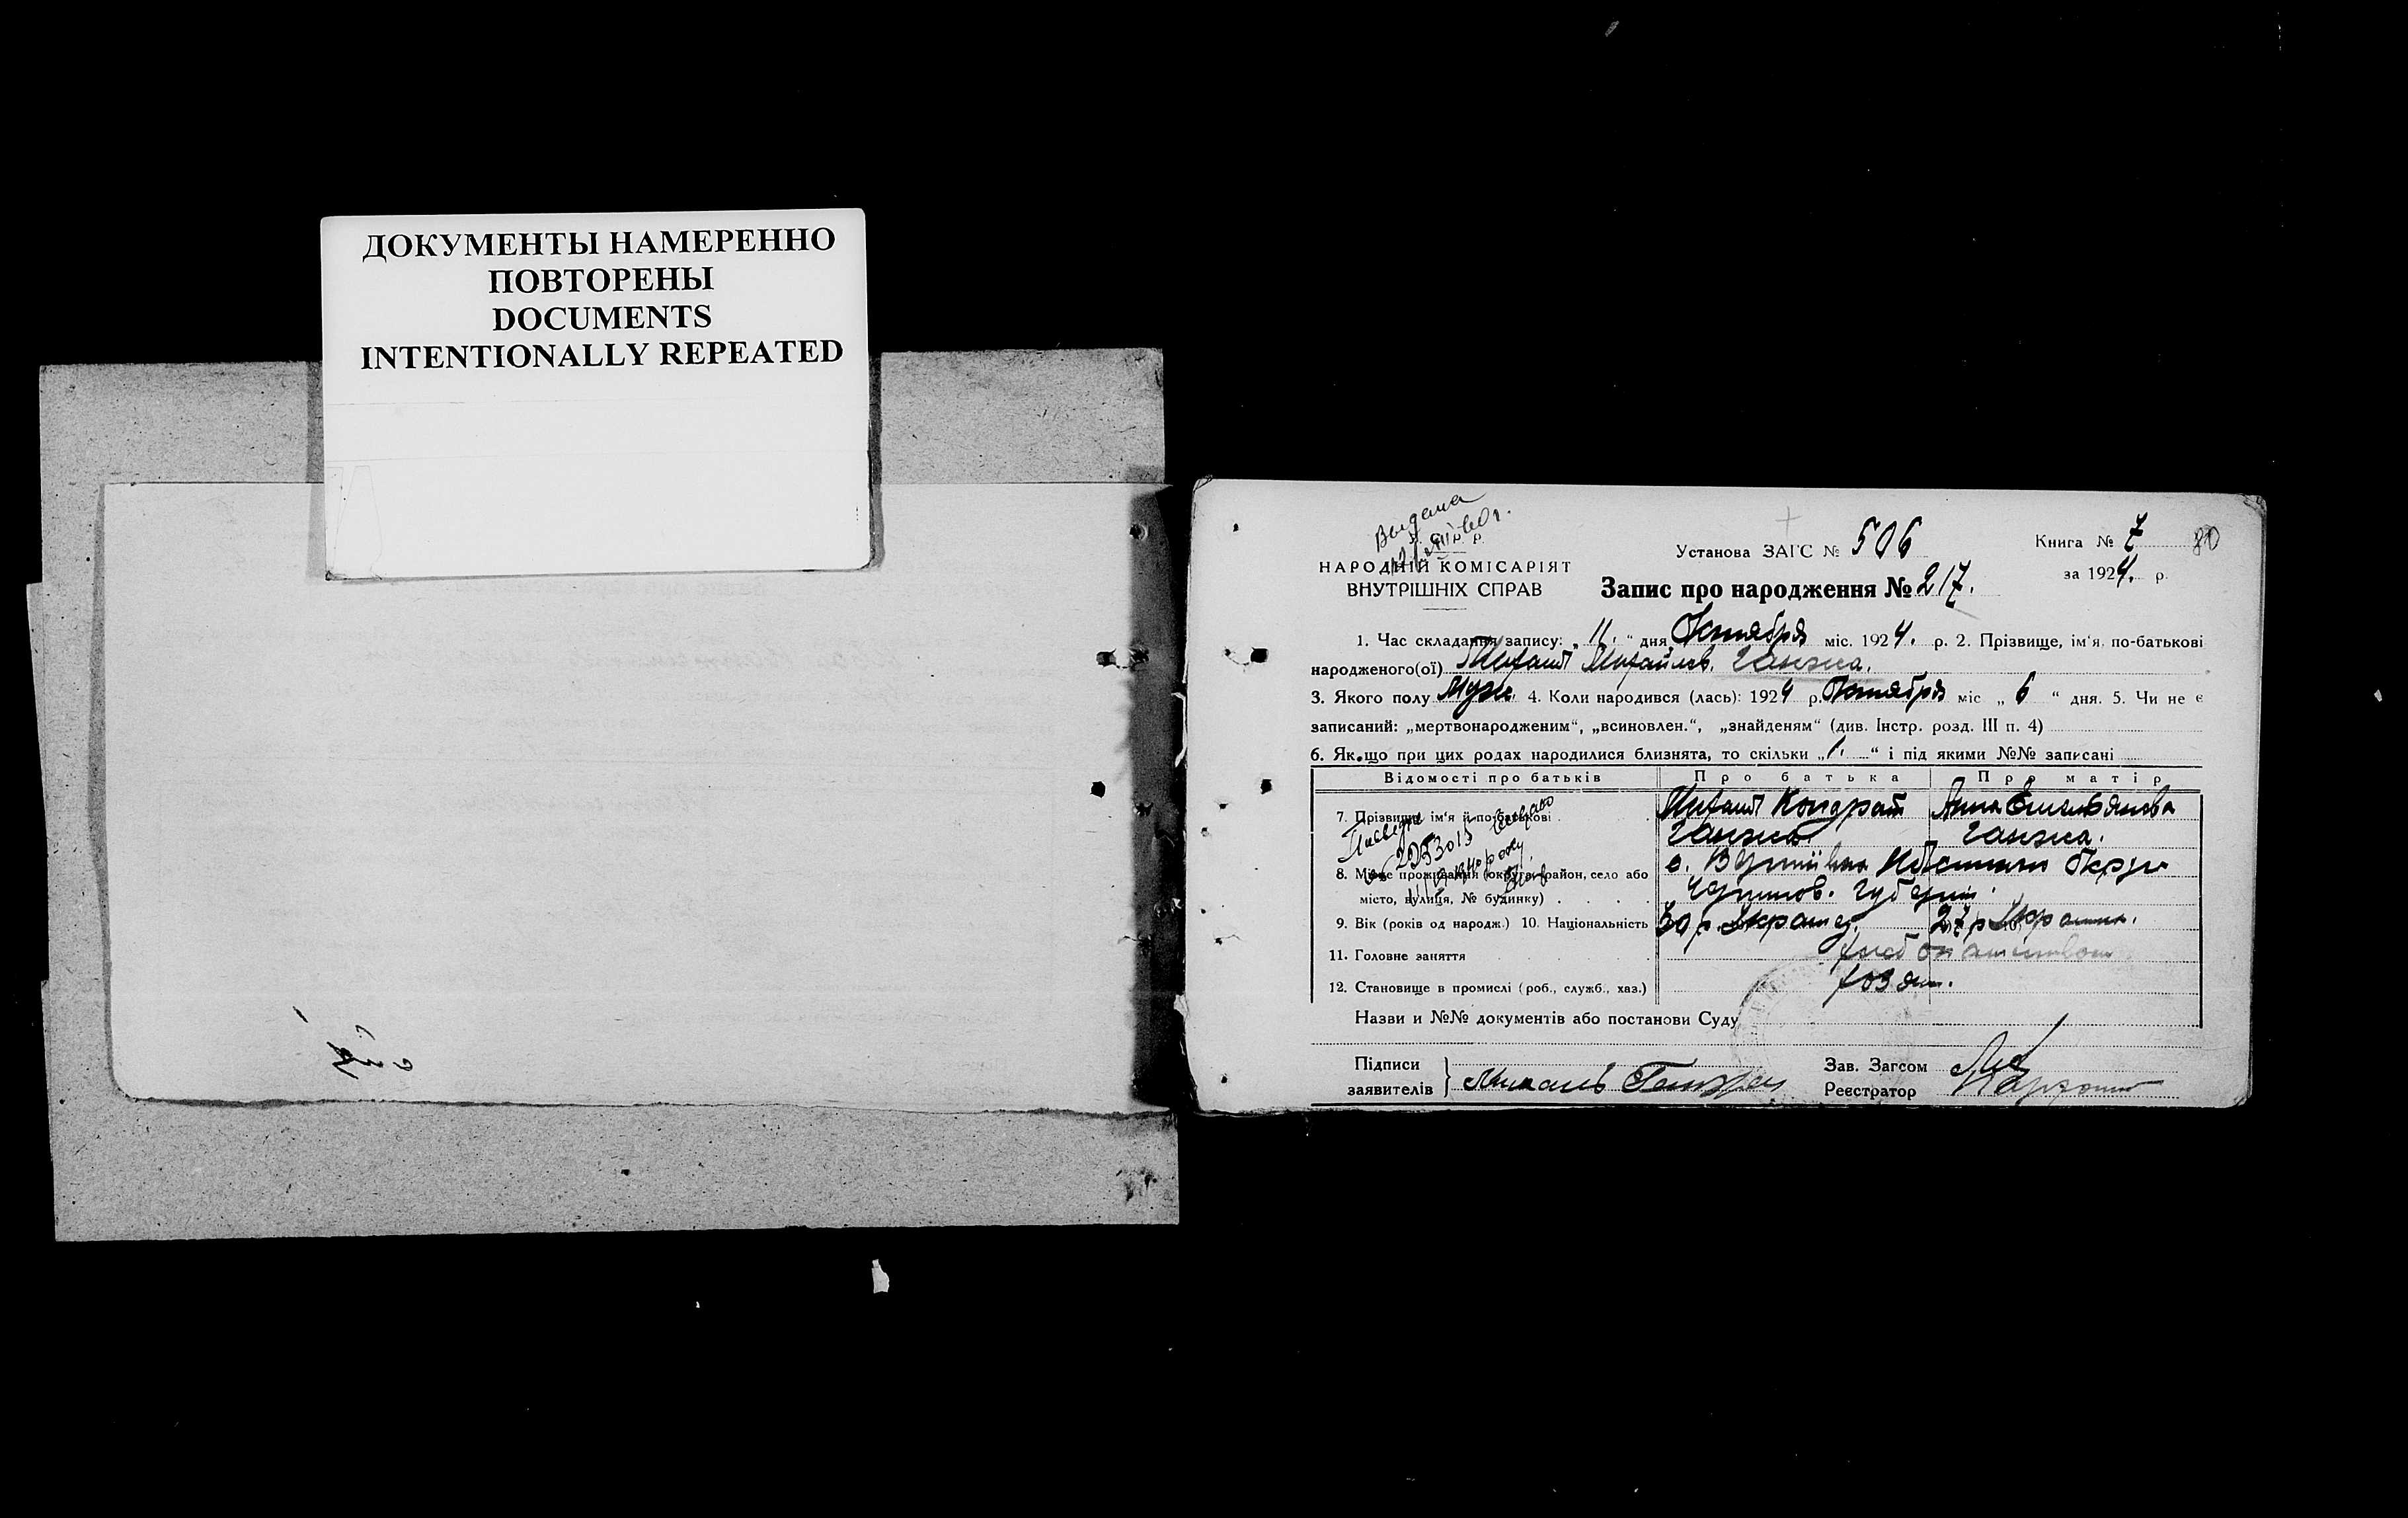 ДОКУМЕНТЫ НАМЕРЕННО
ПОВТОРЕНЫ
DOCUMENTS
INTENTIONALLY REPEATED
Выдана
У. С. Р. Р.
НАРОДНІЙ КОМІСАРІЯТ
ВНУТРІШНІХ СПРАВ
Установа ЗАГС № 506
Книга № 7
80
за 1924. р.
Запис про народження № 217.
1. Час складання запису: „ 11. “ дня Октября міс. 1924. р. 2. Прізвище, ім'я, по-батькові
народженого(ої) Михаил Михайлов. Ганжа.
3. Якого полу Муж. 4. Коли народився (лась): 1924 р. Октября міс „ 6 “ дня. 5. Чи не є
записаний: „мертвонародженим“, „всиновлен.“, „знайденям“ (див. Інстр. розд. III п. 4)
6. Як що при цих родах народилися близнята, то скільки „ 1. “ і під якими №№ записані
Відомості про батьків Про батька Про матір
7. Прізвище ім'я й по-батькові Михаил Кондрат Анна Емельянова
Ганжа Ганжа.
8. Місце проживання (округа, район, село або с. Вертіївка Ніжинськ Округи
місто, вулиця, № будинку) Чернигов. Губернії
9. Вік (років од народж.) 10. Національність 30 р. Украинец. 27 р. Украинк.
11. Головне заняття хлебопашеством
12. Становище в промислі (роб., служб., хаз.) хозяин.
Назви и №№ документів або постанови Суду
Підписи
заявителів
Михаил Ганжа
Зав. Загсом
Реєстратор